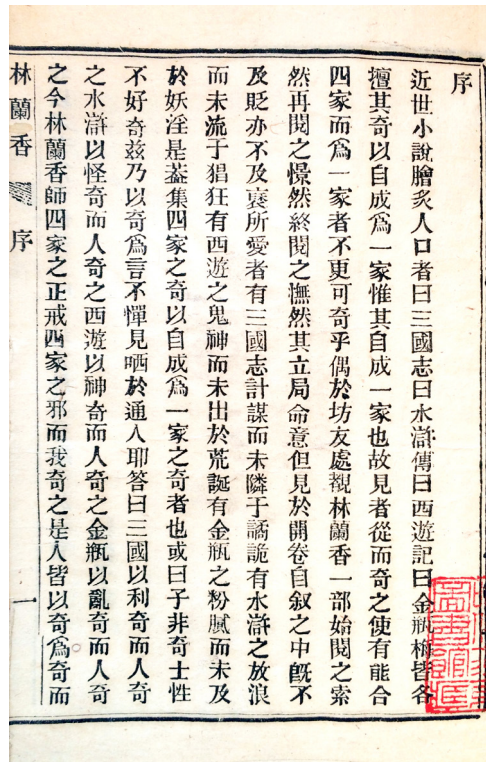 序
近世小說膾炙人口者曰三國志曰水滸傳曰西遊記曰金瓶梅皆各
擅其奇以自成爲一家惟其自成一家也故見者從而奇之使有能合
四家而爲一家者不更可奇乎偶於坊友處覩林蘭香一部始閱之索
然再閱之憬然終閱之憮然其立局命意但見於開卷自叙之中既不
及貶亦不及襃所愛者有三國志計謀而未隣于譎詭有水滸之放浪
而未流于猖狂有西遊之鬼神而未出於荒誕有金瓶之粉膩而未及
於妖淫是葢集四家之奇以自成爲一家之奇者也或曰子非奇士性
不好奇兹乃以奇爲言不憚見哂於通人耶答曰三國以利奇而人奇
之水滸以怪奇而人奇之西遊以神奇而人奇之金瓶以亂奇而人奇
之今林蘭香師四家之正戒四家之邪而我奇之是人皆以奇爲奇而
林蘭香 序 一